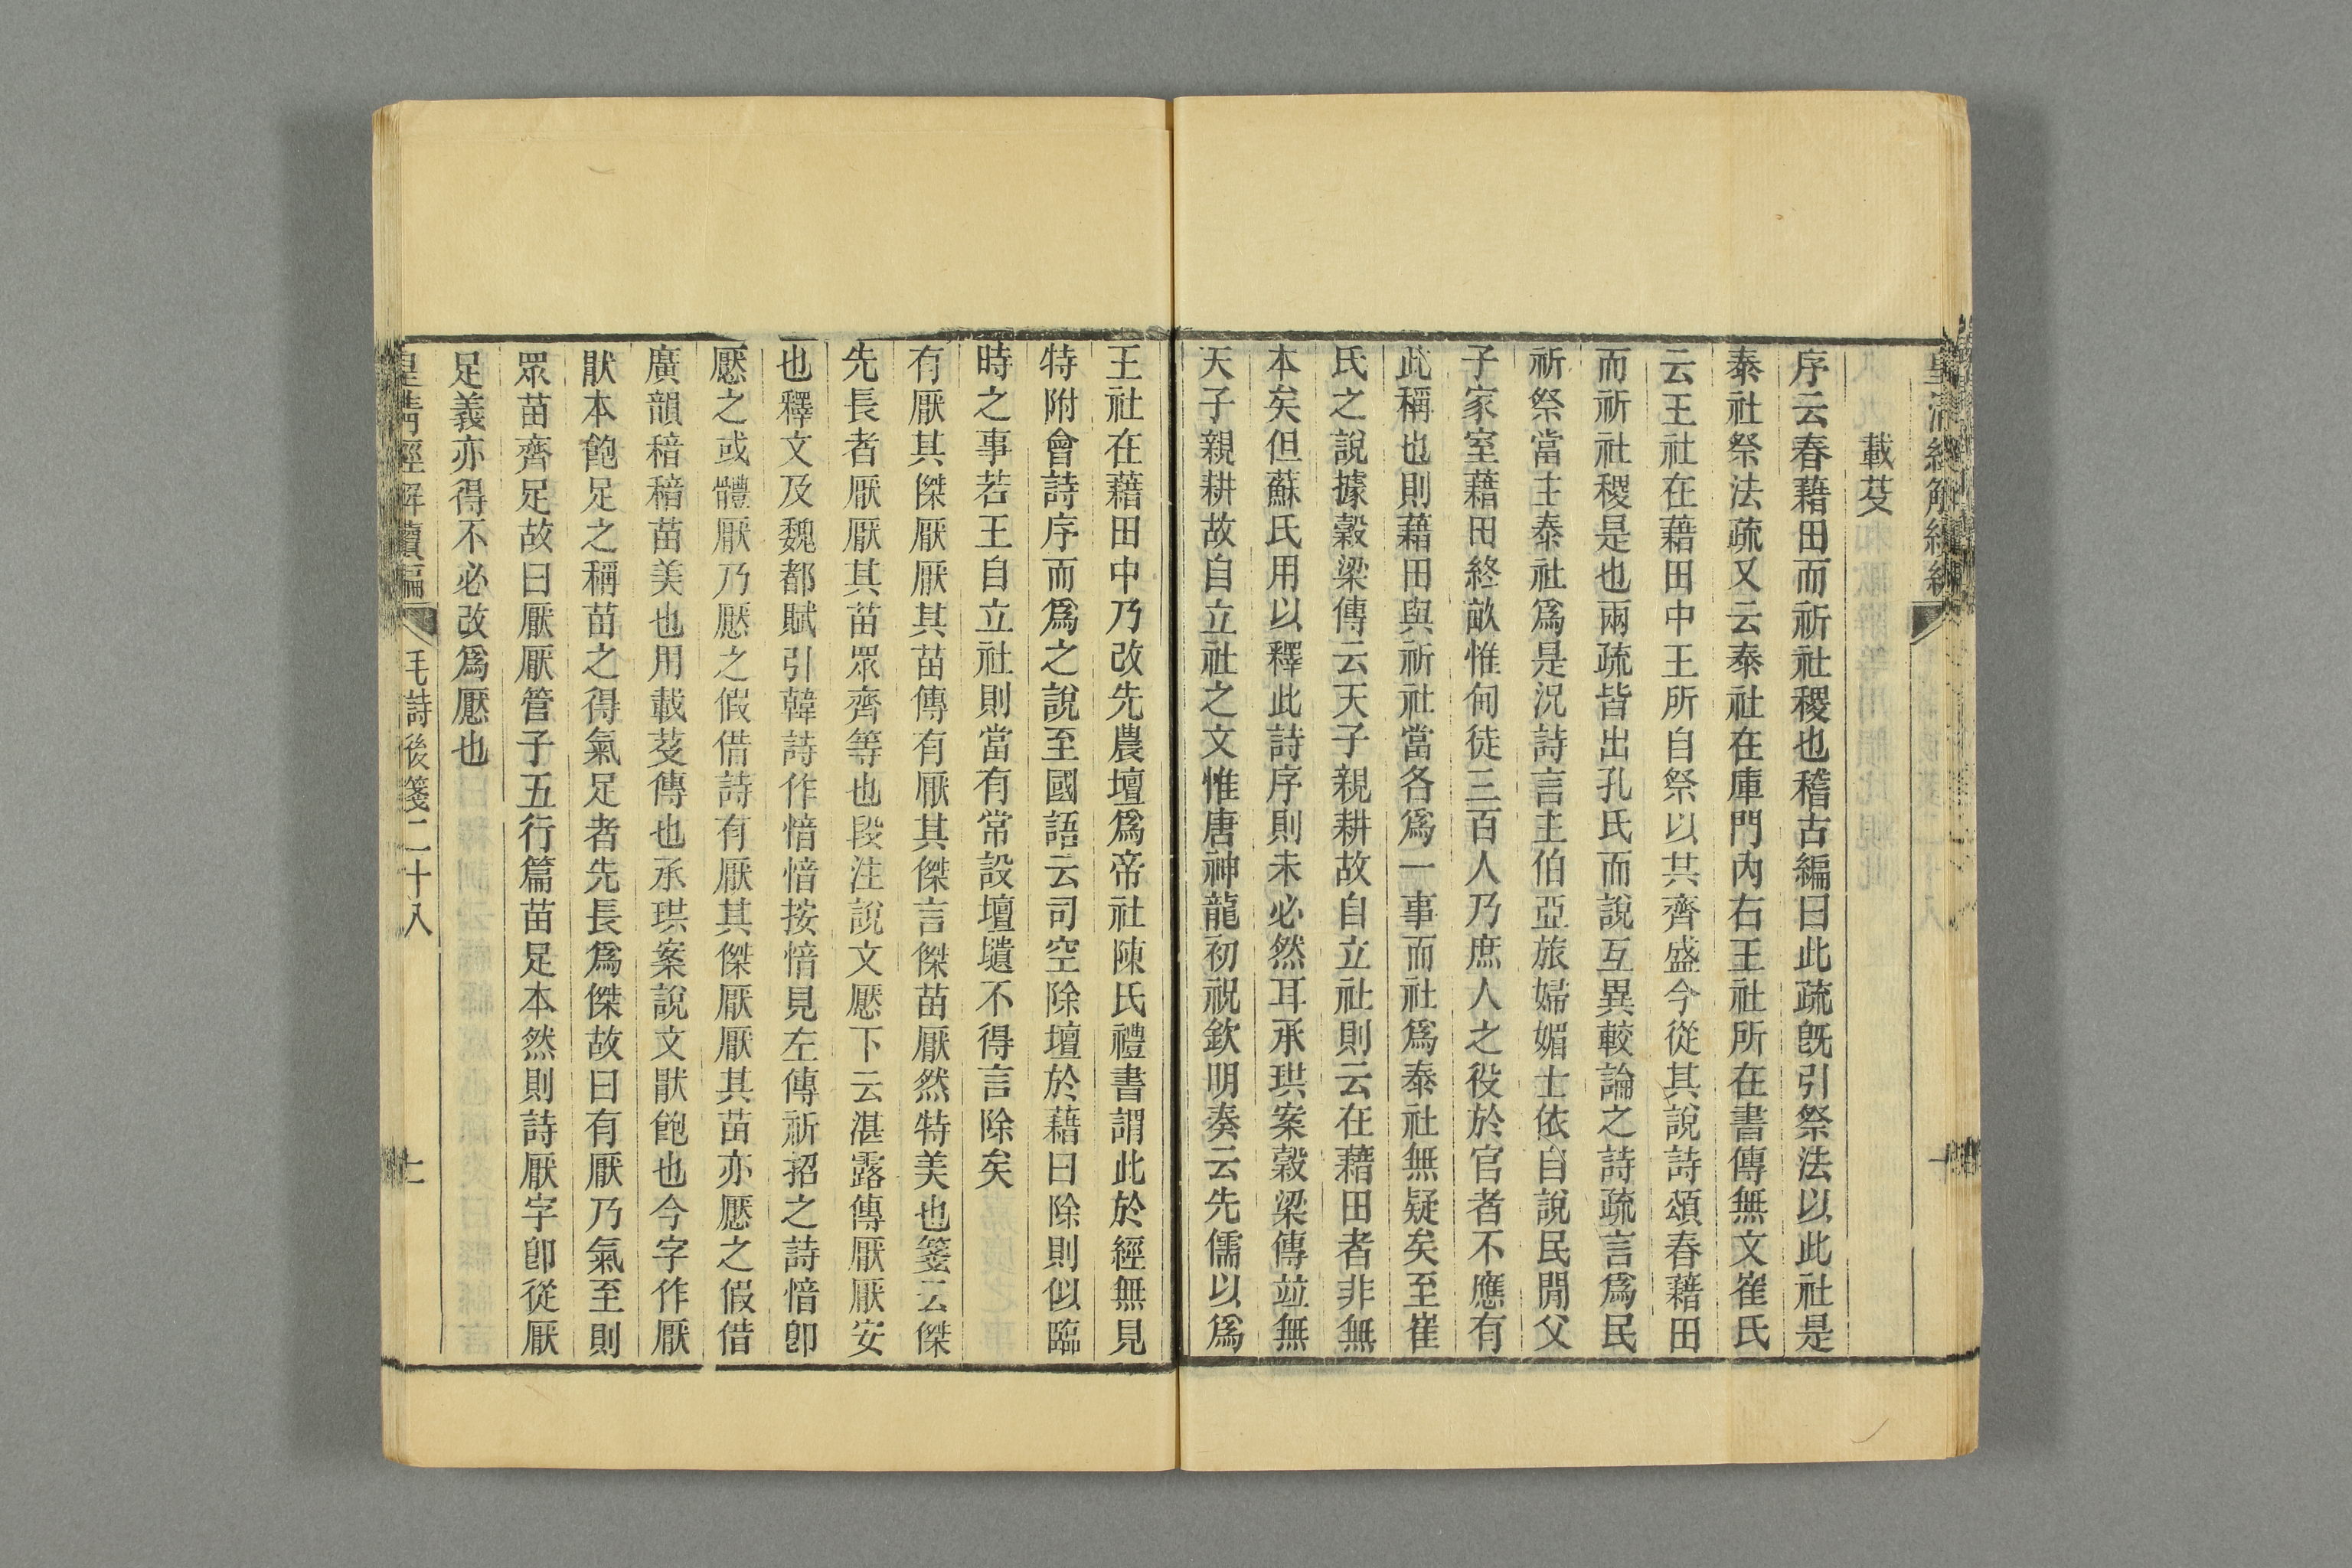 載芟
序云春藉田而祈社稷也稽古編曰此疏旣引祭法以此社是
泰社祭法疏又云泰社在庫門內右王社所在書傳無文崔氏
云王社在藉田中王所自祭以共齊盛今從其說詩頌春藉田
而祈社稷是也兩疏皆出孔氏而說互異較論之詩疏言爲民
祈祭當主泰社爲是況詩言主伯亞旅婦媚士依自說民閒父
子家室藉田終畝惟甸徒三百人乃庶人之役於官者不應有
此稱也則藉田與祈社當各爲一事而社爲泰社無疑矣至崔
氏之說據穀梁傳云天子親耕故自立社則云在藉田者非無
本矣但蘇氏用以釋此詩序則未必然耳承珙案穀梁傳竝無
天子親耕故自立社之文惟唐神龍初祝欽明奏云先儒以爲
王社在藉田中乃改先農壇爲帝社陳氏禮書謂此於經無見
特附會詩序而爲之說至國語云司空除壇於藉曰除則似臨
時之事若王自立社則當有常設壇壝不得言除矣
有厭其傑厭厭其苗傳有厭其傑言傑苗厭然特美也箋云傑
先長者厭厭其苗眾齊等也段注說文懕下云湛露傳厭厭安
也釋文及魏都賦引韓詩作愔愔按愔見左傳祈招之詩愔卽
懕之或體厭乃懕之假借詩有厭其傑厭厭其苗亦懕之假借
廣韻稖稖苗美也用載芟傳也承珙案說文猒飽也今字作厭
猒本飽足之稱苗之得氣足者先長爲傑故曰有厭乃氣至則
眾苗齊足故曰厭厭管子五行篇苗足本然則詩厭字卽從厭
足義亦得不必改爲懕也
皇清經解續編
毛詩後箋二十八